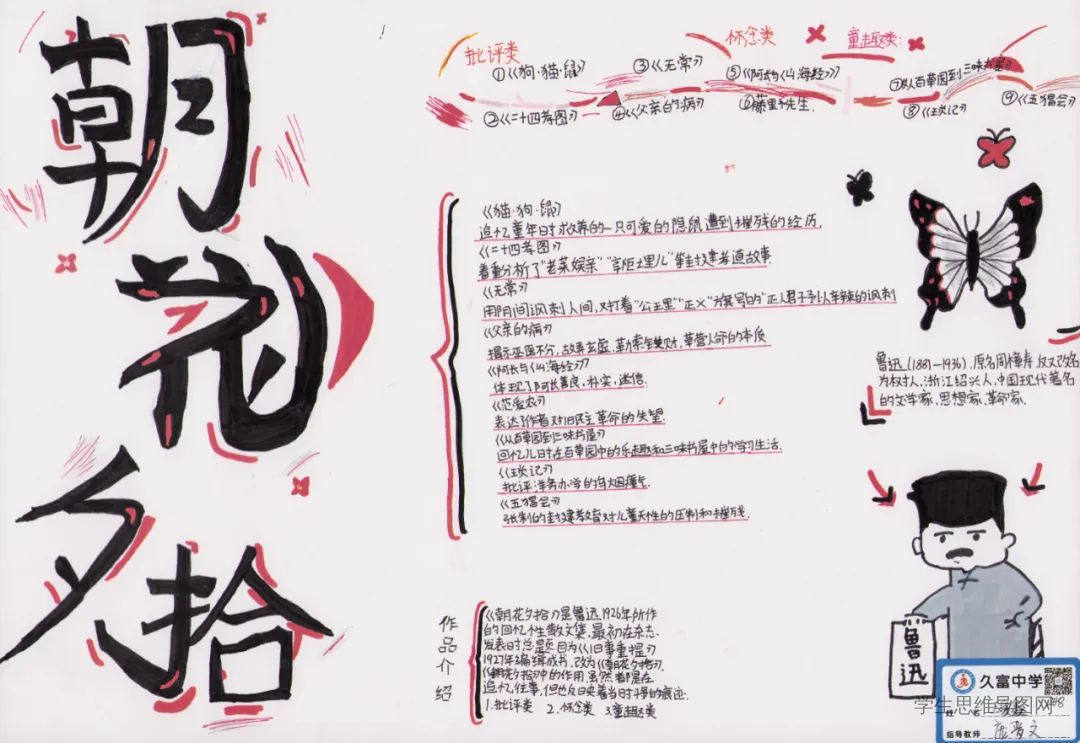 朝花夕拾
批评类
怀念类
童趣类:
①《狗·猫·鼠》
②《二十四孝图》
③《无常》
④《父亲的病》
⑤《阿长与《山海经》》
⑥藤野先生.
⑦从百草园到三味书屋》
⑧《琐记》
⑨《五猖会》
《猫·狗·鼠》
追忆童年时救养的一只可爱的隐鼠遭到摧残的经历.
《二十四孝图》
着重分析了"老莱娱亲""郭巨埋儿"等封建孝道故事
《无常》
用阴间讽刺人间,对打着"公正里""正义"旗号的"正人君子予以辛辣的讽刺
《父亲的病》
揭示巫医不分,故弄玄虚,勒索钱财,草菅人命的本质
《阿长与《山海经》》
体现了阿长善良,朴实,迷信.
《范爱农》
表达了作者对旧民主革命的失望.
《从百草园到三味书屋》
回忆儿时在百草园中的乐趣和三味书屋中的学习生活.
《琐记》
批评洋务办学的乌烟瘴气.
《五猖会》
强制的封建教育对儿童天性的压制和摧残.
鲁迅(1881—1936).原名周樟寿.后又改名
为树人.浙江绍兴人,中国现代著名
的文学家,思想家,革命家.
作品介绍
《朝花夕拾》是鲁迅1926年所作
的回忆性散文集,最初在杂志
发表时总题目为《旧事重提》
1927年编辑成书,改为《朝花夕拾》.
《朝花夕拾》中的作用虽然都是在
追忆往事,但也反映着当时
1.批评类 2.怀念类 3.童趣类
鲁迅
久富中学
学生思维导图网
姓名
指导教师